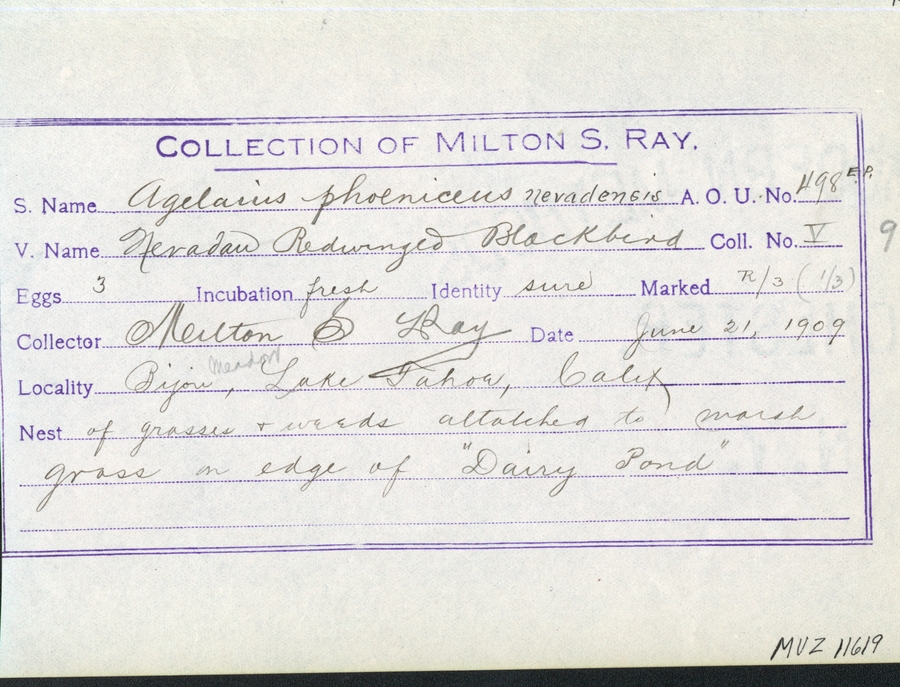 COLLECTION OF MILTON S. RAY.
S. Name Agelaius phoeniceus nevadensis A. O. U. No. 498 E.P.
V. Name Nevadan Redwinged Blackbird Coll. No. V 9
Eggs 3 Incubation fresh Identity sure Marked R/3 (1/3)
Collector Milton S Ray Date June 21, 1909
meadow
Locality Bijou, Lake Tahoe, Calif
Nest of grasses + weeds attatched to marsh
grass on edge of "Dairy Pond"
MVZ 11619